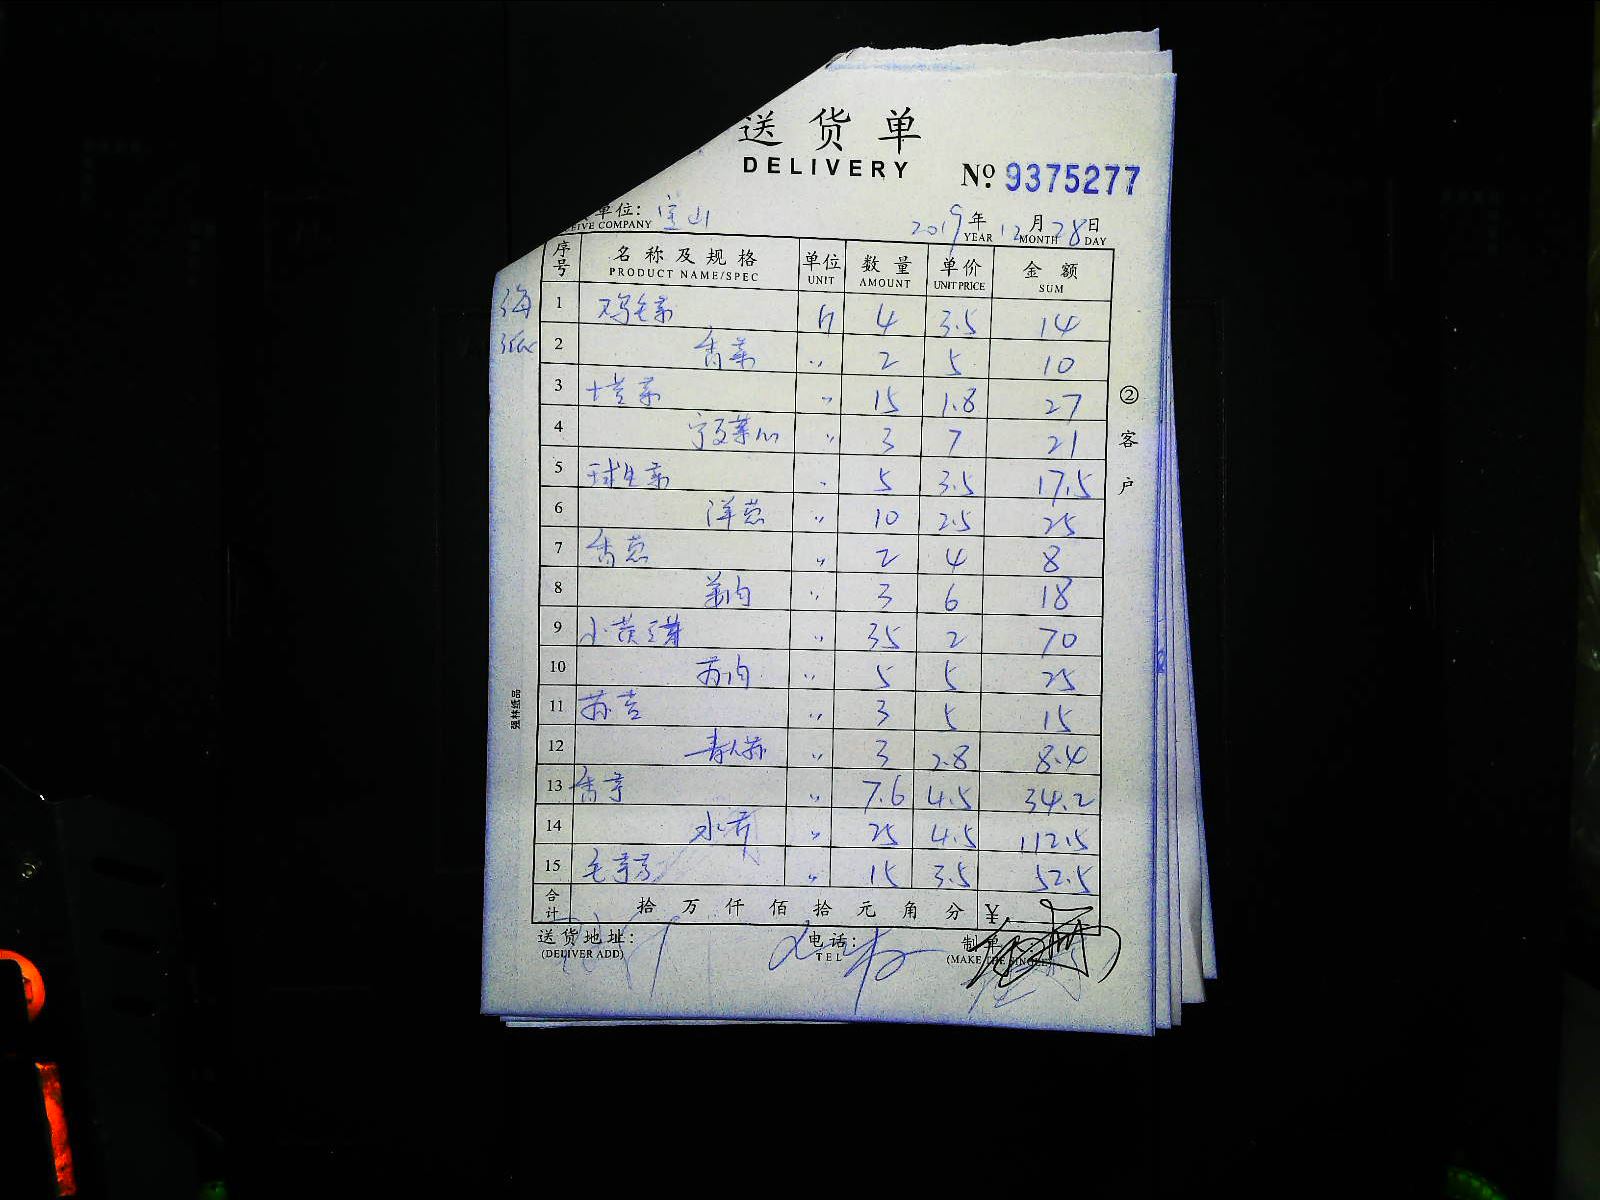 送货单
DELIVERY
No. 9375277
单位: 宝山
EIVE COMPANY
2019年12月28日
YEAR MONTH DAY
序号 名称及规格 单位 数量 单价 金额
PRODUCT NAME/SPEC UNIT AMOUNT UNIT PRICE SUM
1 鸡毛菜 斤 4 3.5 14
2 香菜 〃 2 5 10
3 塔菜 〃 15 1.8 27
4 宁夏菜心 〃 3 7 21
5 球生菜 〃 5 3.5 17.5
6 洋葱 〃 10 2.5 25
7 香葱 〃 2 4 8
8 姜肉 〃 3 6 18
9 小黄豆芽 〃 35 2 70
10 〃 5 5 25
11 〃 3 5 15
12 〃 3 2.8 8.4
13 香芋 〃 7.6 4.5 34.2
14 水芹 〃 25 4.5 112.5
15 毛芋艿 〃 15 3.5 52.5
合计 拾 万 仟 佰 拾 元 角 分 ¥
送货地址: 电话: 制单
(DELIVER ADD) TEL (MAKE THE SINGLE)
②客户
强林纸品
海